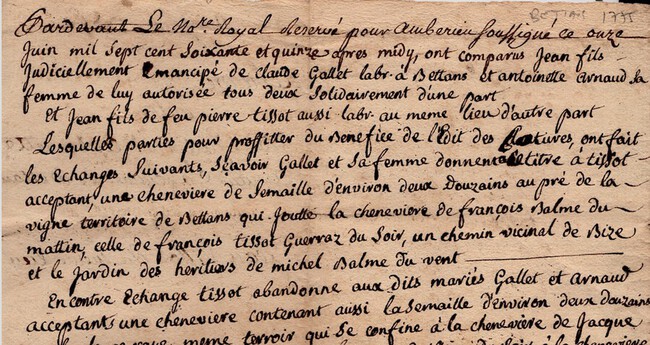 BETTANS 1775
Pardevant Le No.re Royal Reservé pour Amberieu soussigné ce onze
Juin mil sept cent soixante et quinze apres midy, ont comparus Jean fils
Judiciellement Emancipé de claude Gallet labr. à Bettans et antoinette Arnaud sa
femme de luy autorisée tous deux solidairement d'une part
Et Jean fils de feu pierre tissot aussi labr. au meme lieu d'autre part
Lesquelles parties pour proffitter du Benefice de l'Edit des ont fait
les Echanges suivants, Scavoir Gallet et sa femme donnent titre à tissot
acceptant une cheneviere de Semaille d'environ deux Douzains au pré de la
vigne territoire de Bettans qui Joutte la cheneviere de françois Balme du
mattin, celle de françois tissot Guerraz du Soir, un chemin vicinal de Bize
et le Jardin des héritiers de michel Balme du vent
En contre Echange tissot abandonne aux dits mariés Gallet et Arnaud
acceptants une cheneviere contenant aussi la Semaille d'environ deux douzains
meme terroir qui se confine à la cheneviere de Jacque